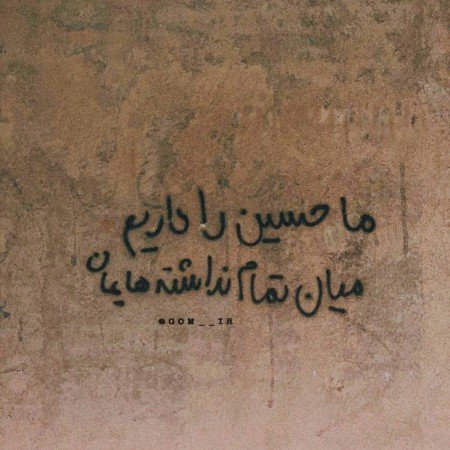 ما حسین را داریم
میان تمام نداشته هایمان
@GOM__IR